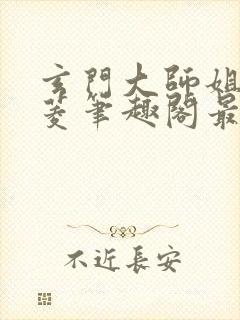 玄門大師姐
菱筆趣閣最
不近長安